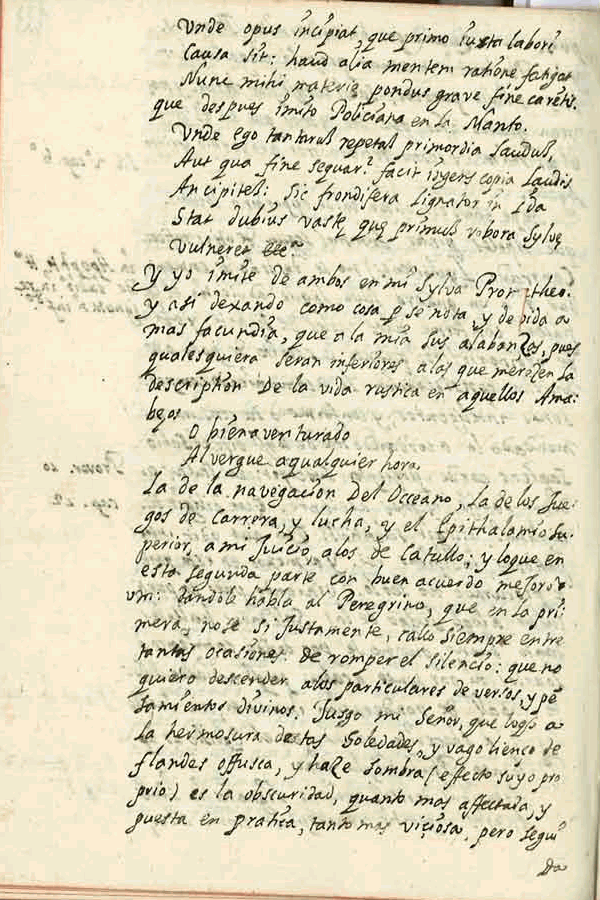 Vnde opus incipiat que primo iusta labori
Causa sit: haud alia mentem ratione fatigat
Nunc mihi materie pondus grave fine carētis.
que despues imito Policiano en la Manto.
Vnde ego tantarum repetam primordia laudum,
Aut qua fine sequar? facit ingens copia laudis
Ancipitem: sic frondifera lignator in Ida
Stat dubius vastę quę primum robora Sylvę
vulneret &&
Y yo imite de ambos en mi Sylva Promtheo.
y asi dexando como cosa q̃ se nota, y devida a
mas facundia, que a la mia sus alabanzas, pues
qualesquiera seran inferiores a las que merecen la
descriptiōn de la vida rustica en aquellos Ama:
beos
O bienaventurado
Alvergue a qualquier hora.
La de la navegacion del Occeano, la de los Jue:
gos de Carrera, y lucha, y el Epithalamio Su:
perior, a mi Juicio, a los de Catullo; y lo que en
esta segunda parte con buen acuerdo mejoro
dandole habla al Peregrino, que en la pri:
mera, no se si Justamente, callo siempre entre
tantas ocasiones de romper el silencio: que no
quiero descender a los particulares de versos, y pē
samientos divinos. Jusgo mi Señor, que lo q̃ a
la hermosura destas Soledades, y vago lienco de
flandes offusca, y haze sombra (effecto suyo pro
prio) es la obscuridad, quanto mas affectada, y
puesta en pratica, tanto mas viçiosa, pero segui
da